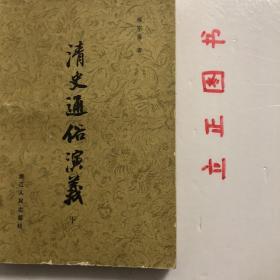 清史通俗演義
下
浙江人民出版社
立正图书